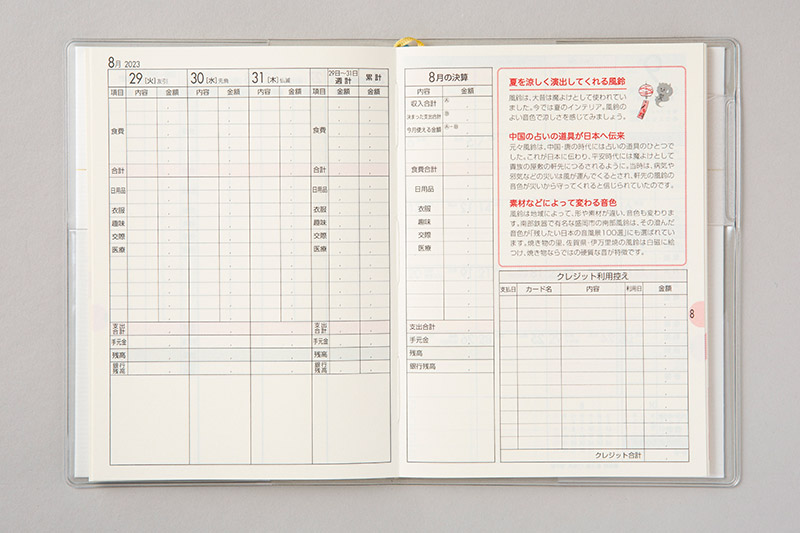 8月 2023
29 [火] 友引 30 [水] 先負 31 [木] 仏滅 29日~31日 週計 累計
項目 内容 金額 内容 金額 内容 金額 項目 金額 金額
食費 食費
合計 合計
日用品 日用品
衣服 衣服
趣味 趣味
交際 交際
医療 医療
支出合計 支出合計
手元金 手元金
残高 残高
銀行残高 銀行残高
8月の決算
内容 金額
収入合計 Ⓐ
決まった支出合計 Ⓑ
今月使える金額 Ⓐ-Ⓑ
食費合計
日用品
衣服
趣味
交際
医療
支出合計
手元金
残高
銀行残高
夏を涼しく演出してくれる風鈴
風鈴は、大昔は魔よけとして使われてい
ました。今では夏のインテリア。風鈴の
よい音色で涼しさを感じてみましょう。
中国の占いの道具が日本へ伝来
元々風鈴は、中国・唐の時代には占いの道具のひとつで
した。これが日本に伝わり、平安時代には魔よけとして
貴族の屋敷の軒先につるされるように。当時は、病気や
邪気などの災いは風が運んでくるとされ、軒先の風鈴の
音色が災いから守ってくれると信じられていたのです。
素材などによって変わる音色
風鈴は地域によって、形や素材が違い、音色も変わりま
す。南部鉄器で有名な盛岡市の南部風鈴は、その澄んだ
音色が「残したい日本の音風景100選」にも選ばれてい
ます。焼き物の里、佐賀県・伊万里焼の風鈴は白磁に絵
つけ、焼き物ならではの硬質な音が特徴です。
クレジット利用控え
支払日 カード名 内容 利用日 金額
クレジット合計
8